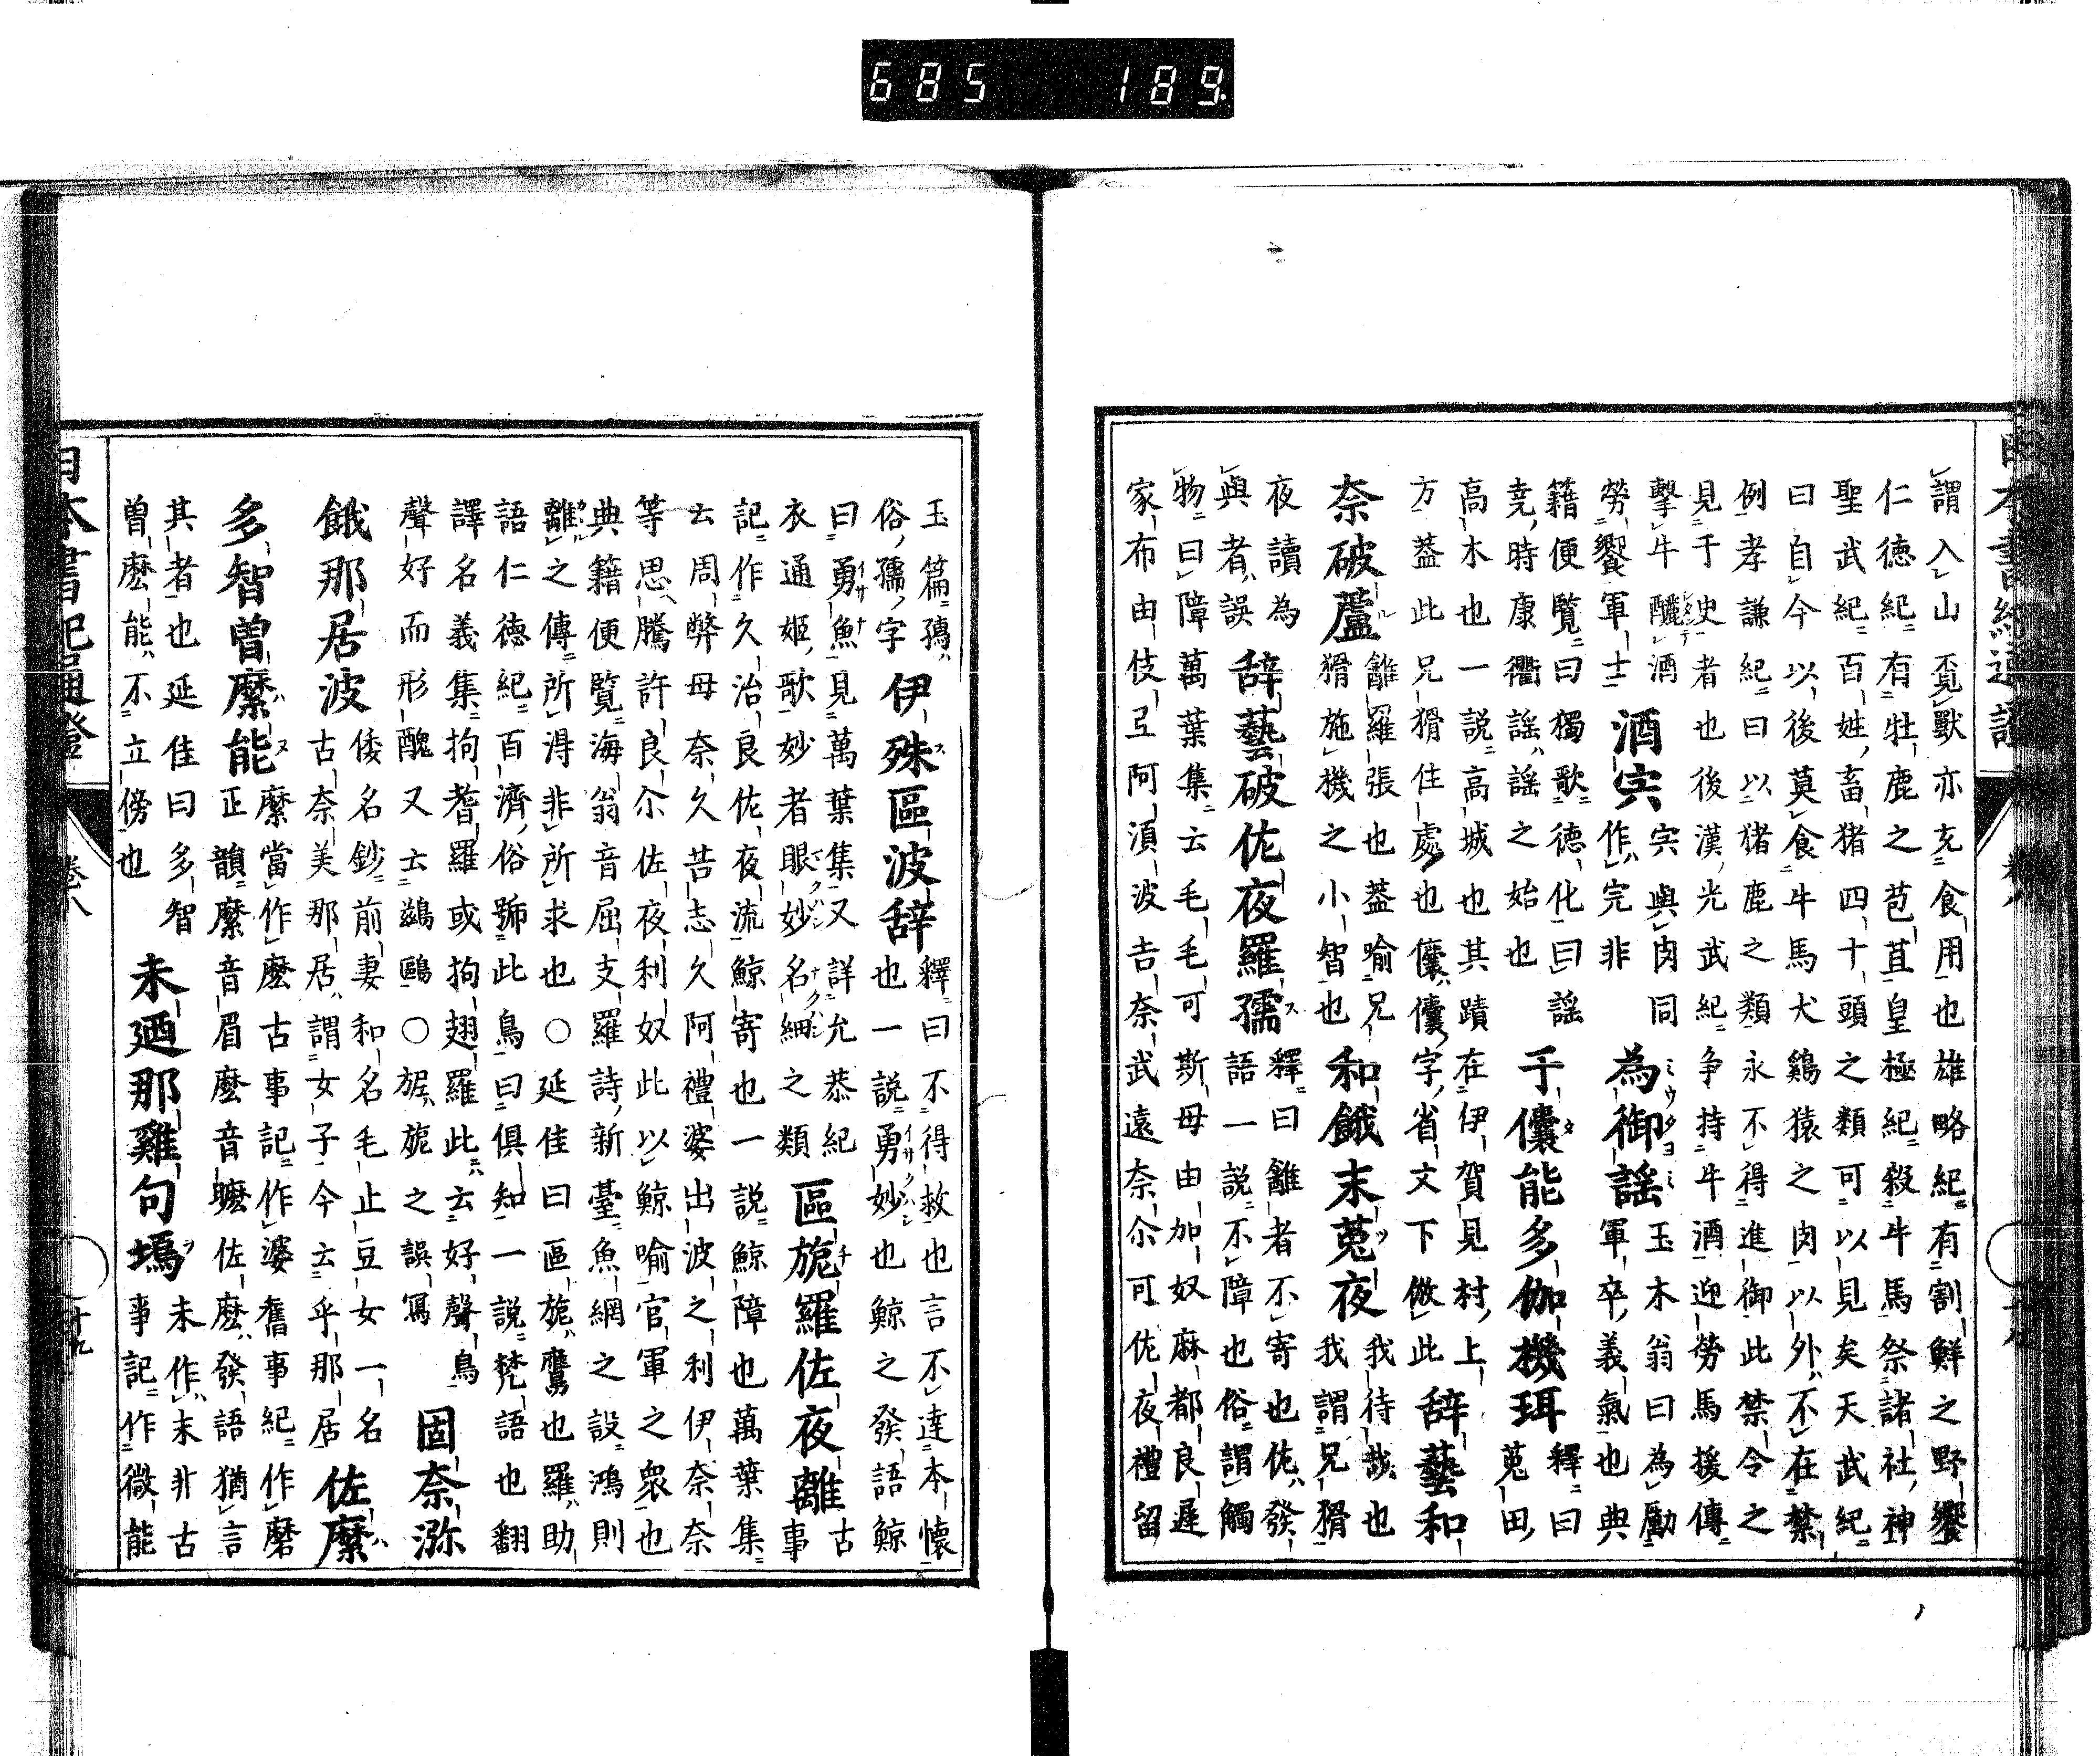 謂入山覓獸亦充食用也雄略紀有割鮮之野饗
仁徳紀有牡鹿之苞苴皇極紀殺牛馬祭諸社神
聖武紀百姓畜猪四十頭之類可以見矣天武紀
曰自今以後莫食牛馬犬鷄猿之肉以外不在禁
例孝謙紀曰以猪鹿之類永不得進御此禁令之
見于史者也後漢光武紀争持牛酒迎勞馬援傳
擊牛釃酒
勞饗軍士
酒宍
宍與肉同
作完非
為御謡
玉木翁曰為勵
軍卒義氣也典
籍便覧曰獨歌徳化曰謡
尭時康衢謡謡之始也
于儾能多伽機珥
釋曰
莵田
高木也一説高城也其蹟在伊賀見村上
方蓋此兄猾住處也儾儾字省文下倣此
辞藝和
奈破蘆
雖羅張也蓋喩兄
猾施機之小智也
和餓末莵夜
我待哉也
我謂兄猾
夜讀為
與者誤
辞藝破佐夜羅孺
釋曰雖者不寄也佐發
語一説不障也俗謂觸
物曰障萬葉集云毛毛可斯母由加奴麻都良遅
家布由伎弖阿湏波吉奈武遠奈尓可佐夜禮留
日本書紀通證 巻八 十九
玉篇
俗孺字
伊殊區波辞
釋曰不得救也言不達本懐
也一説勇妙也鯨之發語鯨
曰勇魚見萬葉集又詳允恭紀
衣通姫歌妙者眼妙名細之類
區旎羅佐夜離
古
事
記作久治良佐夜流鯨寄也一説鯨障也萬葉集
云周弊母奈久苦志久阿禮婆出波之利伊奈奈
等思騰許良尓佐夜利奴此以鯨喩官軍之衆也
典籍便覧海翁音屈支羅詩新臺魚網之設鴻則
離之傳所得非所求也○延佳曰區旎鷹也羅助
語仁徳紀百濟俗號此鳥曰倶知一説梵語也翻
譯名義集拘耆羅或拘翅羅此云好聲鳥
聲好而形醜又云鷀鷗○旎之誤寫
固奈濔
餓那居波
倭名鈔前妻和名毛止豆女一名
古奈美那居謂女子今云乎那居
佐縻
多智曽縻能
縻當作麼古事記作婆舊事紀作磨
正韻縻音眉麼音嚤佐麼發語猶言
其者也延佳曰多智
曽麼能不立傍也
未廼那雞句塢
未作末非古
事記作微能
日本書紀通證 巻八 十九